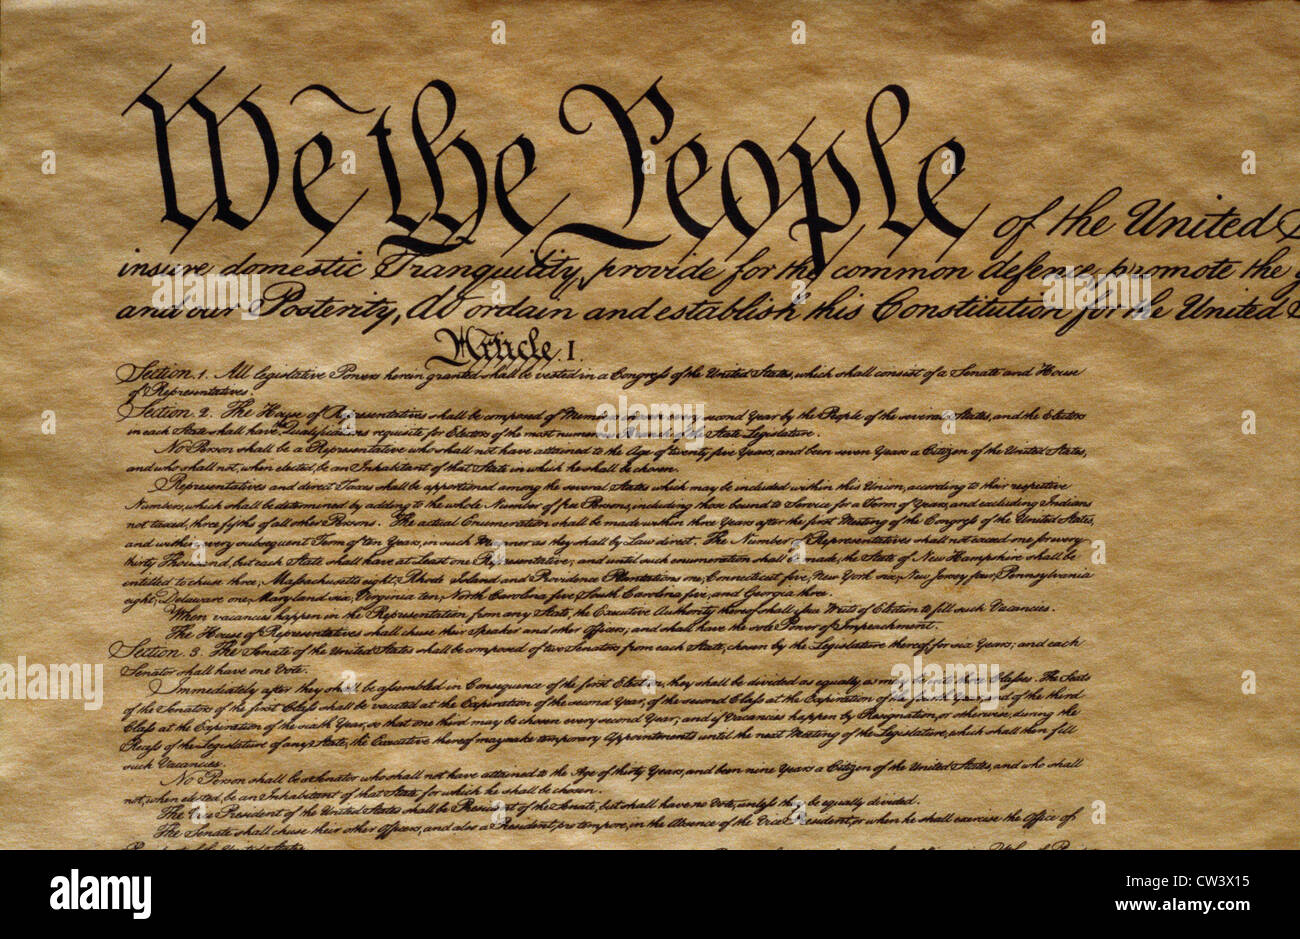 We the People of the United S
insure domestic Tranquility, provide for the common defence, promote the g
and our Posterity, do ordain and establish this Constitution for the United S
Article. I.
Section. 1. All legislative Powers herein granted shall be vested in a Congress of the United States, which shall consist of a Senate and House
of Representatives.
Section. 2. The House of Representatives shall be composed of Members chosen every second Year by the People of the several States, and the Electors
in each State shall have the Qualifications requisite for Electors of the most numerous Branch of the State Legislature.
No Person shall be a Representative who shall not have attained to the Age of twenty five Years, and been seven Years a Citizen of the United States,
and who shall not, when elected, be an Inhabitant of that State in which he shall be chosen.
Representatives and direct Taxes shall be apportioned among the several States which may be included within this Union, according to their respective
Numbers, which shall be determined by adding to the whole Number of free Persons, including those bound to Service for a Term of Years, and excluding Indians
not taxed, three fifths of all other Persons. The actual Enumeration shall be made within three Years after the first Meeting of the Congress of the United States,
and within every subsequent Term of ten Years, in such Manner as they shall by Law direct. The Number of Representatives shall not exceed one for every
thirty Thousand, but each State shall have at Least one Representative; and until such enumeration shall be made, the State of New Hampshire shall be
entitled to chuse three, Massachusetts eight, Rhode Island and Providence Plantations one, Connecticut five, New York six, New Jersey four, Pennsylvania
eight, Delaware one, Maryland six, Virginia ten, North Carolina five, South Carolina five, and Georgia three.
When vacancies happen in the Representation from any State, the Executive Authority thereof shall issue Writs of Election to fill such Vacancies.
The House of Representatives shall chuse their Speaker and other Officers; and shall have the sole Power of Impeachment.
Section. 3. The Senate of the United States shall be composed of two Senators from each State, chosen by the Legislature thereof, for six Years; and each
Senator shall have one Vote.
Immediately after they shall be assembled in Consequence of the first Election, they shall be divided as equally as may be into three Classes. The Seats
of the Senators of the first Class shall be vacated at the Expiration of the second Year, of the second Class at the Expiration of the fourth Year, and of the third
Class at the Expiration of the sixth Year, so that one third may be chosen every second Year; and if Vacancies happen by Resignation, or otherwise, during the
Recess of the Legislature of any State, the Executive thereof may make temporary Appointments until the next Meeting of the Legislature, which shall then fill
such Vacancies.
No Person shall be a Senator who shall not have attained to the Age of thirty Years, and been nine Years a Citizen of the United States, and who shall
not, when elected, be an Inhabitant of that State for which he shall be chosen.
The Vice President of the United States shall be President of the Senate, but shall have no Vote, unless they be equally divided.
The Senate shall chuse their other Officers, and also a President pro tempore, in the Absence of the Vice President, or when he shall exercise the Office of
alamy
Image ID: CW3X15
www.alamy.com